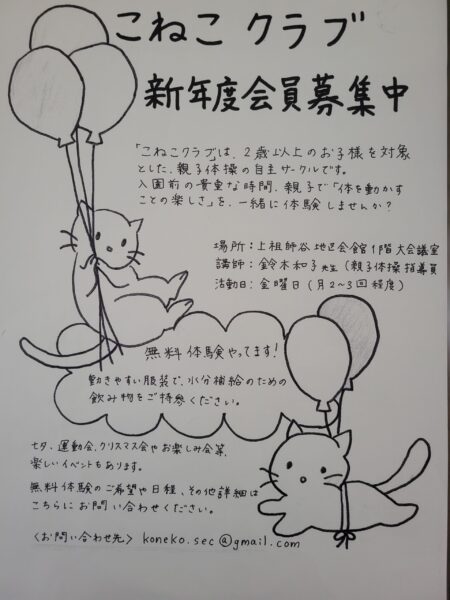 こねこ クラブ
新年度会員募集中
「こねこクラブ」は、2歳以上のお子様を対象
とした、親子体操の自主サークルです。
入園前の貴重な時間、親子で「体を動かす
ことの楽しさ」を、一緒に体験しませんか？
場所：上祖師谷地区会館1階大会議室
講師：鈴木和子先生（親子体操指導員
活動日：金曜日（月2〜3回程度）
無料体験やってます!
動きやすい服装で、水分補給のための
飲み物をご持参ください。
七夕、運動会、クリスマス会やお楽しみ会等、
楽しいイベントもあります。
無料体験のご希望や日程、その他詳細は
こちらにお問い合わせください。
〈お問い合わせ先〉 koneko.sec@gmail.com